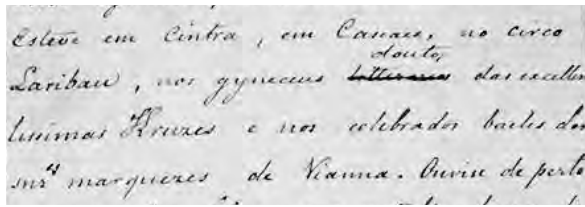 Esteve em Cintra, em Cascaes, no circo
doutos
Laribau, nos gyneceus litterarios das excellen
tissimas Kruzes e nos celebrados bailes dos
snr.es marquezes de Vianna. Ouviu de perto